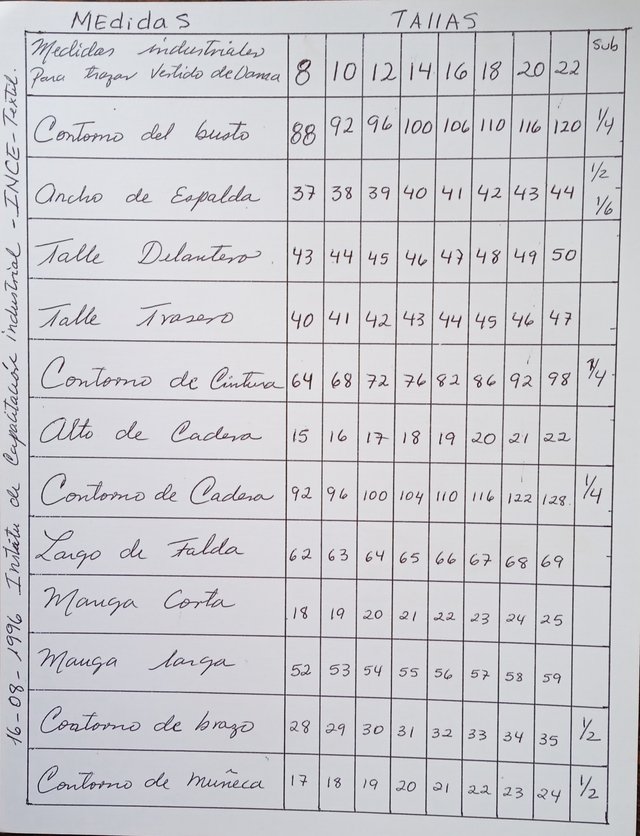 MEdidaS TAllAS
Medidas industriales
Para trazar Vestido de Dama 8 10 12 14 16 18 20 22 Sub
Contorno del busto 88 92 96 100 106 110 116 120 1/4
Ancho de Espalda 37 38 39 40 41 42 43 44 1/2 1/6
Talle Delantero 43 44 45 46 47 48 49 50
Talle Trasero 40 41 42 43 44 45 46 47
Contorno de Cintura 64 68 72 76 82 86 92 98 1/4
Alto de Cadera 15 16 17 18 19 20 21 22
Contorno de Cadera 92 96 100 104 110 116 122 128 1/4
Largo de Falda 62 63 64 65 66 67 68 69
Manga Corta 18 19 20 21 22 23 24 25
Manga larga 52 53 54 55 56 57 58 59
Contorno de brazo 28 29 30 31 32 33 34 35 1/2
Contorno de Muñeca 17 18 19 20 21 22 23 24 1/2
16-08-1996 Institutu de Capacitación industrial - INCE-Textil.